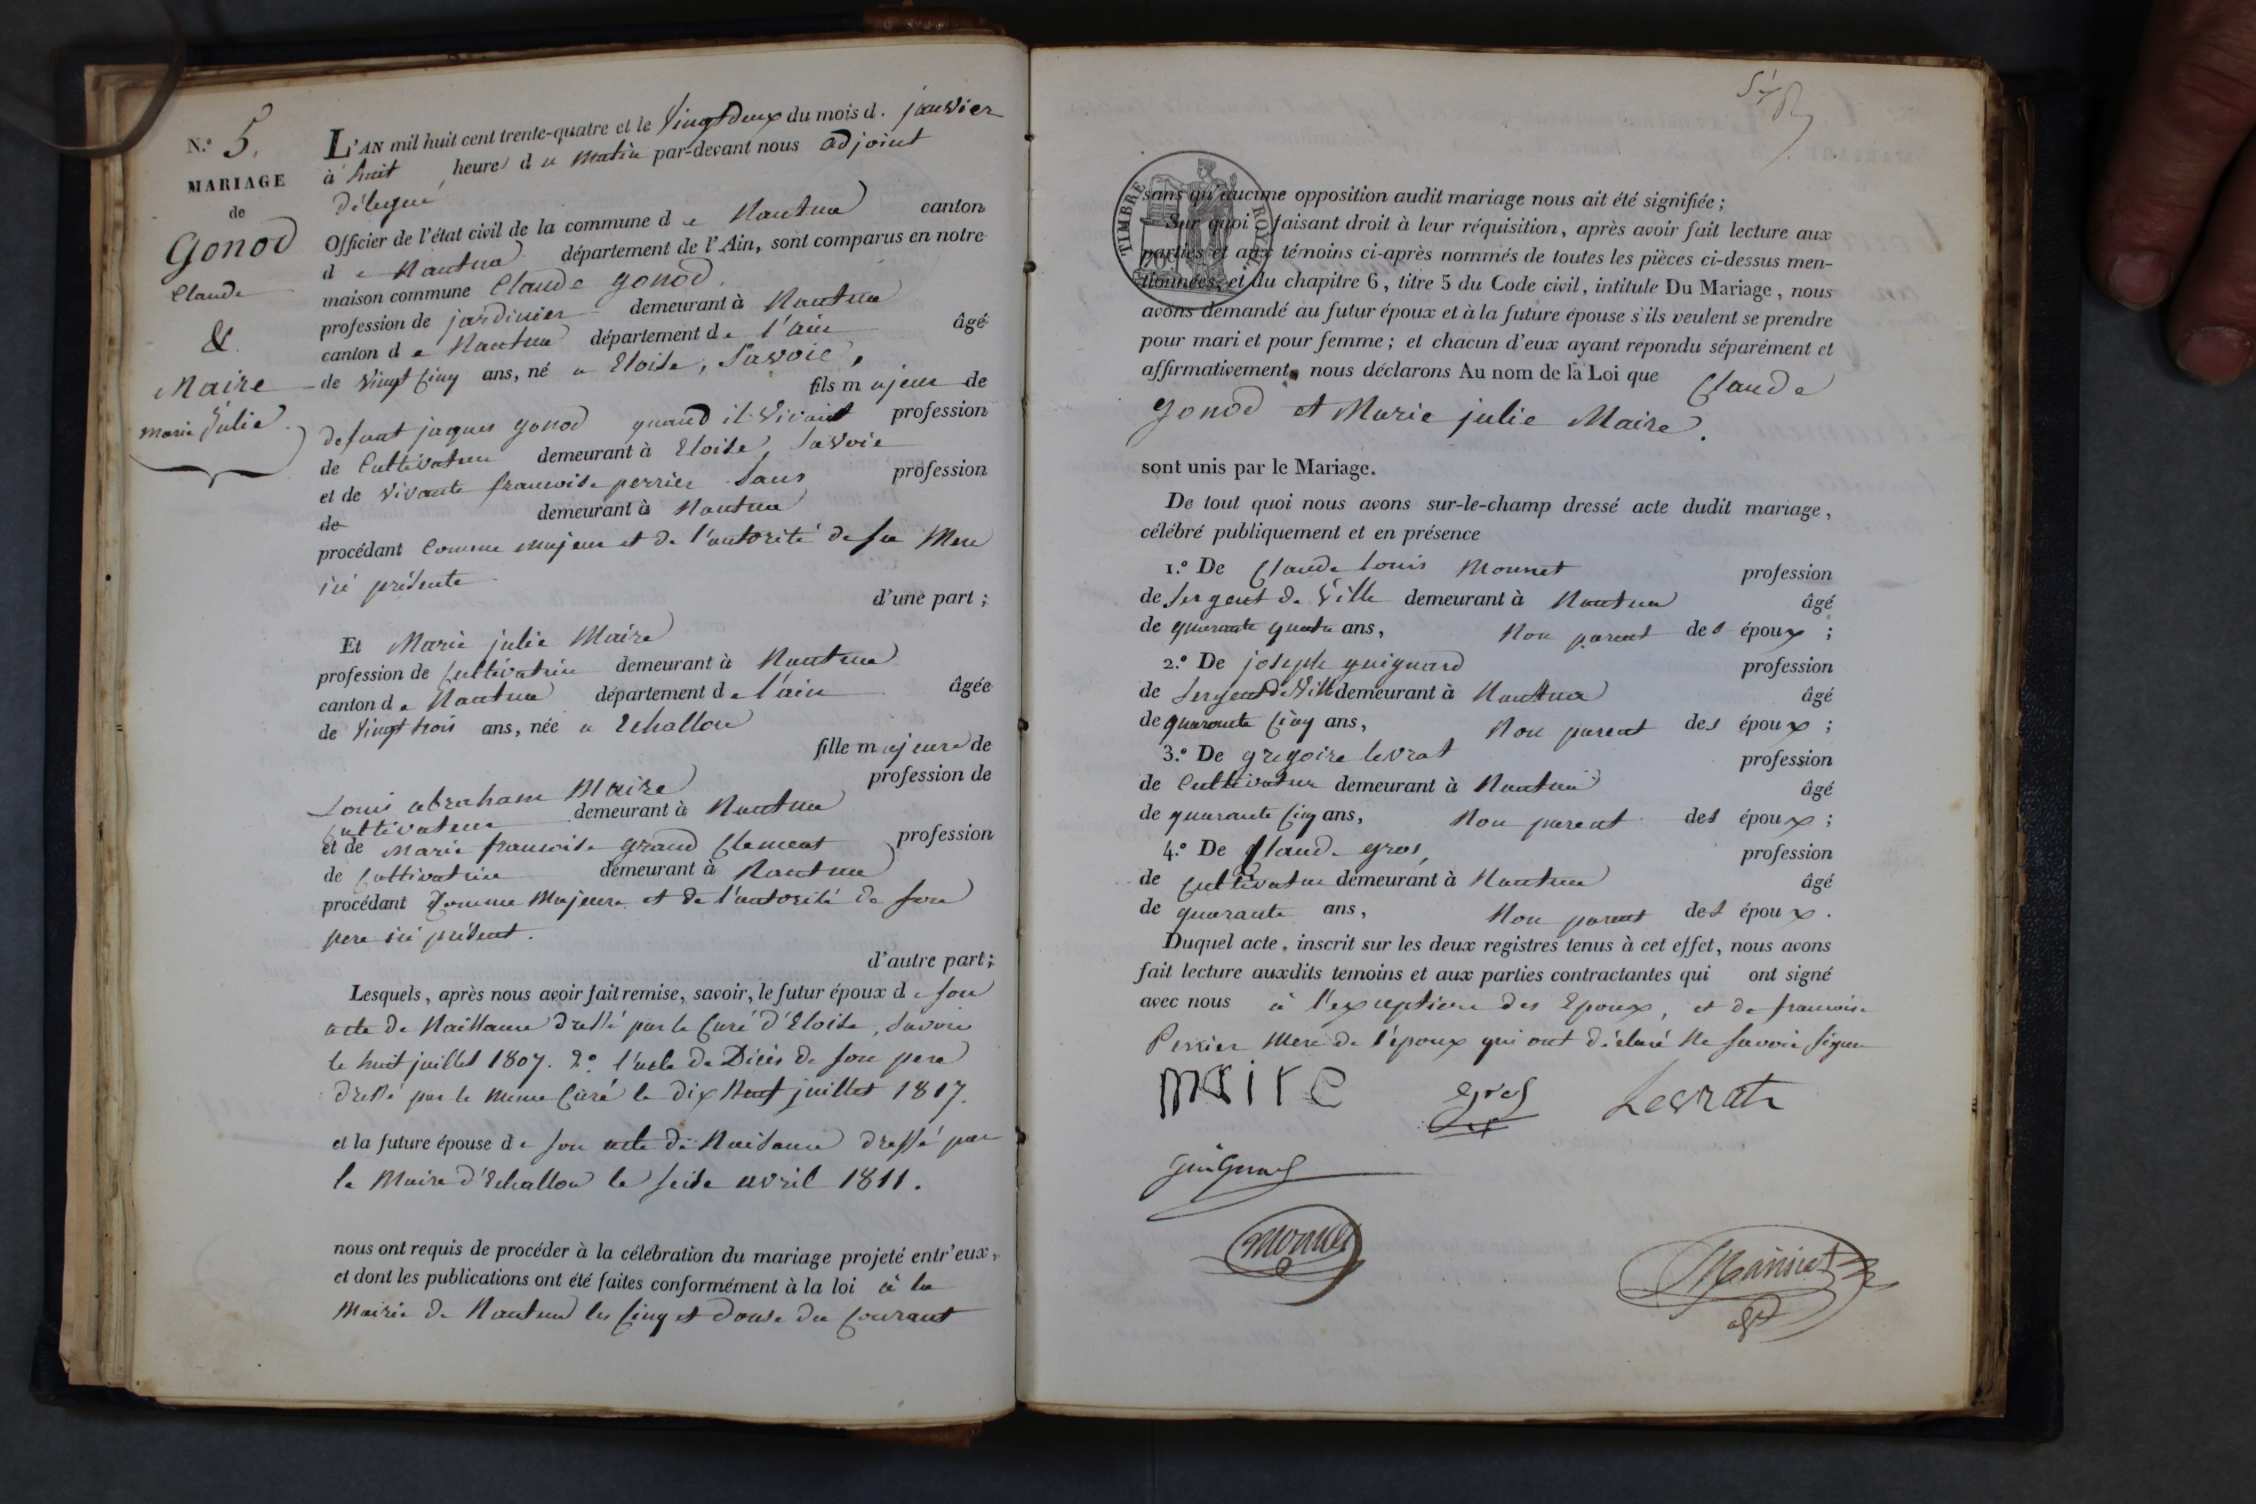 N.º 5.
MARIAGE
de
Gonod
Claude
&
Maire
Marie Julie
L'AN mil huit cent trente-quatre et le vingt deux du mois d. janvier
à huit heures du matin par-devant nous adjoint
délégué
Officier de l'état civil de la commune de Nantua canton
de Nantua département de l'Ain, sont comparus en notre
maison commune Claude gonod.
profession de jardinier demeurant à Nantua
canton de Nantua département de l'ain âgé
de vingt cinq ans, né a Eloise, Savoie,
fils majeur de
defunt jaques gonod quand il vivait profession
de Cultivateur demeurant à Eloise, Savoie
et de vivante francoise perrier sans profession
de demeurant à Nantua
procédant comme majeur et de l'autorité de sa Mere
ici présente
d'une part ;
Et Marie julie Maire
profession de cultivatrice demeurant à Nantua
canton de Nantua département de l'ain âgée
de vingt trois ans, née a Echallon
fille majeure de
Louis abraham Maire profession de
Cultivateur demeurant à Nantua
et de Marie francoise grand Clement profession
de Cultivatrice demeurant à Nantua
procédant Comme Majeure et de l'autorité de son
pere ici présent.
d'autre part ;
Lesquels, après nous avoir fait remise, savoir, le futur époux de son
acte de Naissance dressé par le Curé d'Eloise, Savoie
le huit juillet 1807. 2º l'acte de Décès de son pere
dressé par le meme Curé le dix huit juillet 1817.
et la future épouse de son acte de Naissance dressé par
le Maire d'Echallon le seise avril 1811.
nous ont requis de procéder à la célébration du mariage projeté entr'eux,
et dont les publications ont été faites conformément à la loi à la
Mairie de Nantua les cinq et douse du courant
TIMBRE ROYAL
sans qu'aucune opposition audit mariage nous ait été signifiée ;
Sur quoi, faisant droit à leur réquisition, après avoir fait lecture aux
parties et aux témoins ci-après nommés de toutes les pièces ci-dessus men-
tionnées, et du chapitre 6, titre 5 du Code civil, intitule Du Mariage, nous
avons demandé au futur époux et à la future épouse s'ils veulent se prendre
pour mari et pour femme ; et chacun d'eux ayant repondu séparément et
affirmativement, nous déclarons Au nom de la Loi que Claude
gonod et Marie julie Maire.
sont unis par le Mariage.
De tout quoi nous avons sur-le-champ dressé acte dudit mariage,
célébré publiquement et en présence
1.º De Claude Louis Mounet profession
de Sergent de Ville demeurant à Nantua âgé
de quarante quatre ans, Non parent des époux ;
2.º De joseph guignard profession
de Sergent de Ville demeurant à Nantua âgé
de quarante cinq ans, Non parent des époux ;
3.º De gregoire levrat profession
de Cultivateur demeurant à Nantua âgé
de quarante cinq ans, Non parent des époux ;
4.º De Claude gros, profession
de Cultivateur demeurant à Nantua âgé
de quarante ans, Non parent des époux.
Duquel acte, inscrit sur les deux registres tenus à cet effet, nous avons
fait lecture auxdits temoins et aux parties contractantes qui ont signé
avec nous à l'exception des Epoux, et de francoise
Perrier Mere de l'époux qui ont déclaré Ne savoir signer
maire gros Levrat
Guignard